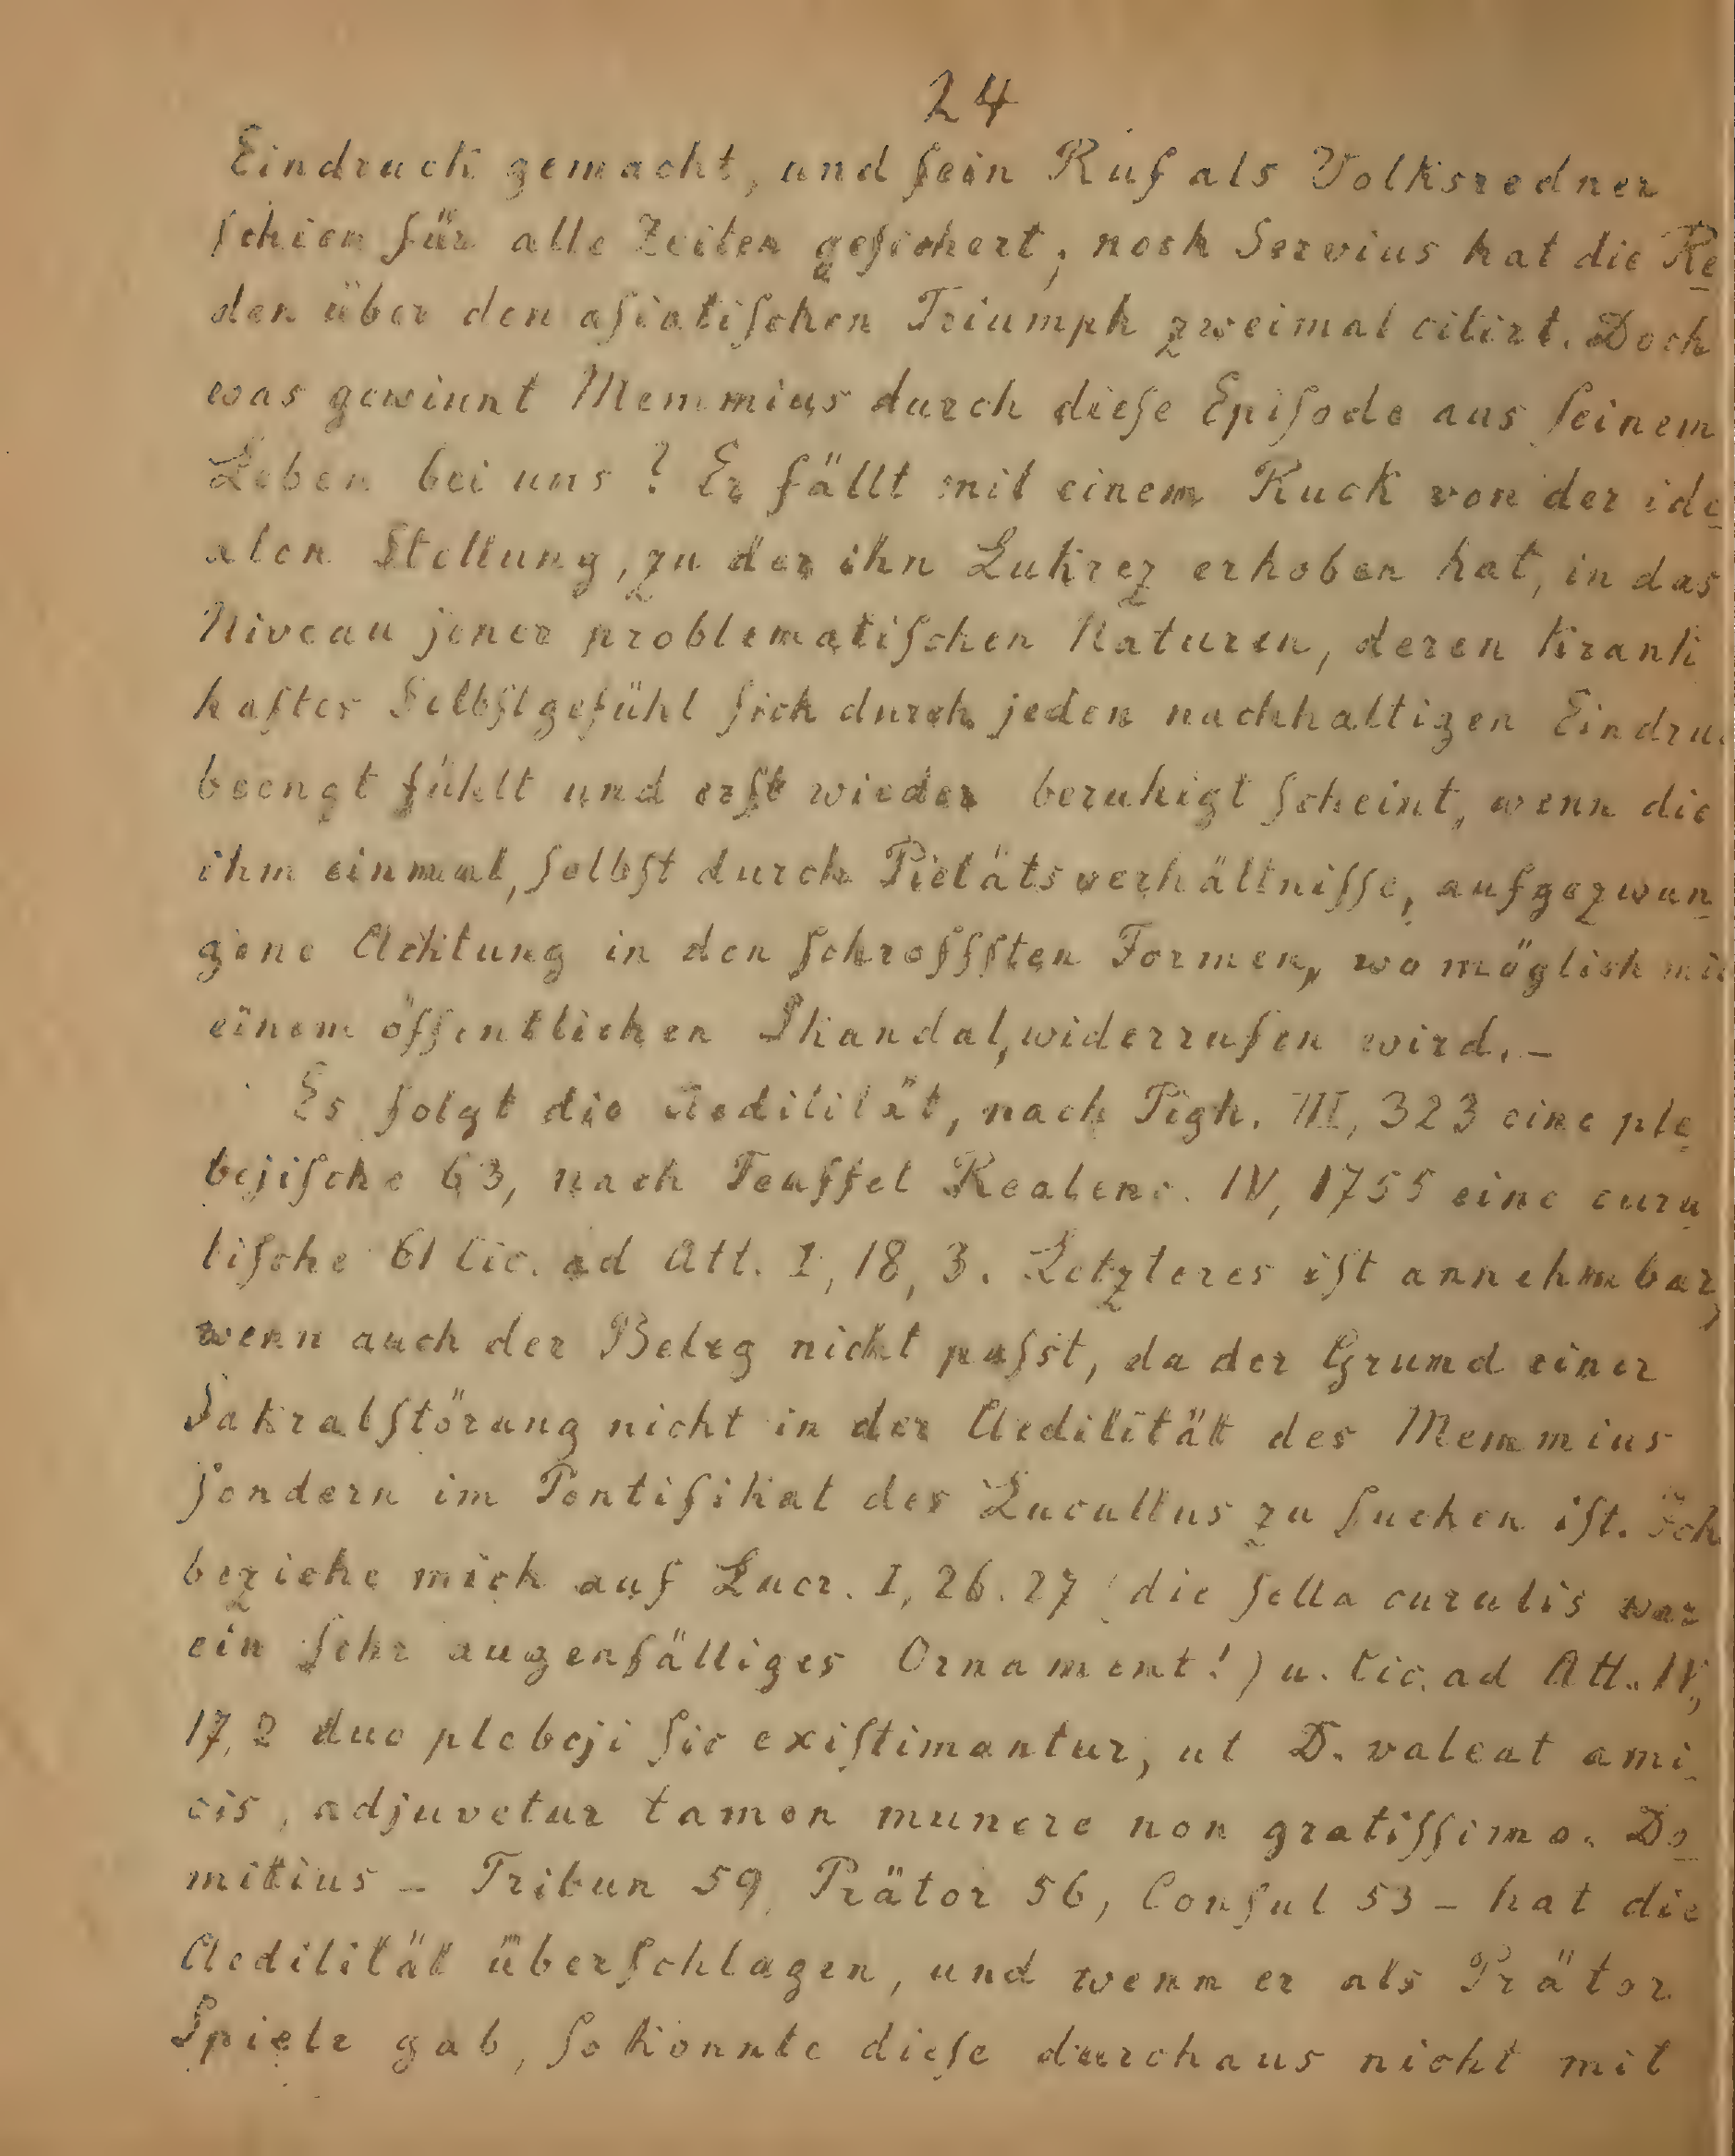 24
Eindruck gemacht, und ſein Ruf als Volksredner
ſchien für alle Zeiten geſichert; noch Servius hat die Re
den über den aſiatiſchen Triumph zweimal citirt. Doch
was gewinnt Memmius durch dieſe Epiſode aus ſeinem
Leben bei uns? Er fällt mit einem Ruck von der ide
alen Stellung, zu der ihn Lukrez erhoben hat, in das
Niveau jener problematiſchen Naturen, deren krank
haftes Selbſtgefühl ſich durch jeden nachhaltigen Eindru
beengt fühlt und erſt wieder beruhigt ſcheint, wenn die
ihm einmal, ſelbſt durch Pietätsverhältniſſe, aufgezwun
gene Achtung in den ſchroffſten Formen, wo möglich mit
einem öffentlichen Skandal, widerrufen wird. –
Es folgt die Aedilität, nach Pigh. III, 323 eine ple
bejiſche 63, nach Teuffel Realenc. IV, 1755 eine curu
liſche 61 Cic. ad Att. I, 18, 3. Letzteres iſt annehmbar,
wenn auch der Beleg nicht paſst, da der Grund einer
Sakralſtörung nicht in der Aedilität des Memmius
ſondern im Pontifikat des Lucullus zu ſuchen iſt. Ich
beziehe mich auf Lucr. I, 26. 27 (die ſella curulis war
ein ſehr augenfälliges Ornament!) u. Cic. ad Att. IV,
17, 2 duo plebeji ſic exiſtimantur, ut D. valeat ami
cis, adjuvetur tamen munere non gratiſſimo. Do
mitius – Tribun 59, Prätor 56, Conſul 53 – hat die
Aedilität überſchlagen, und wenn er als Prätor
Spiele gab, ſo konnte dieſe durchaus nicht mit